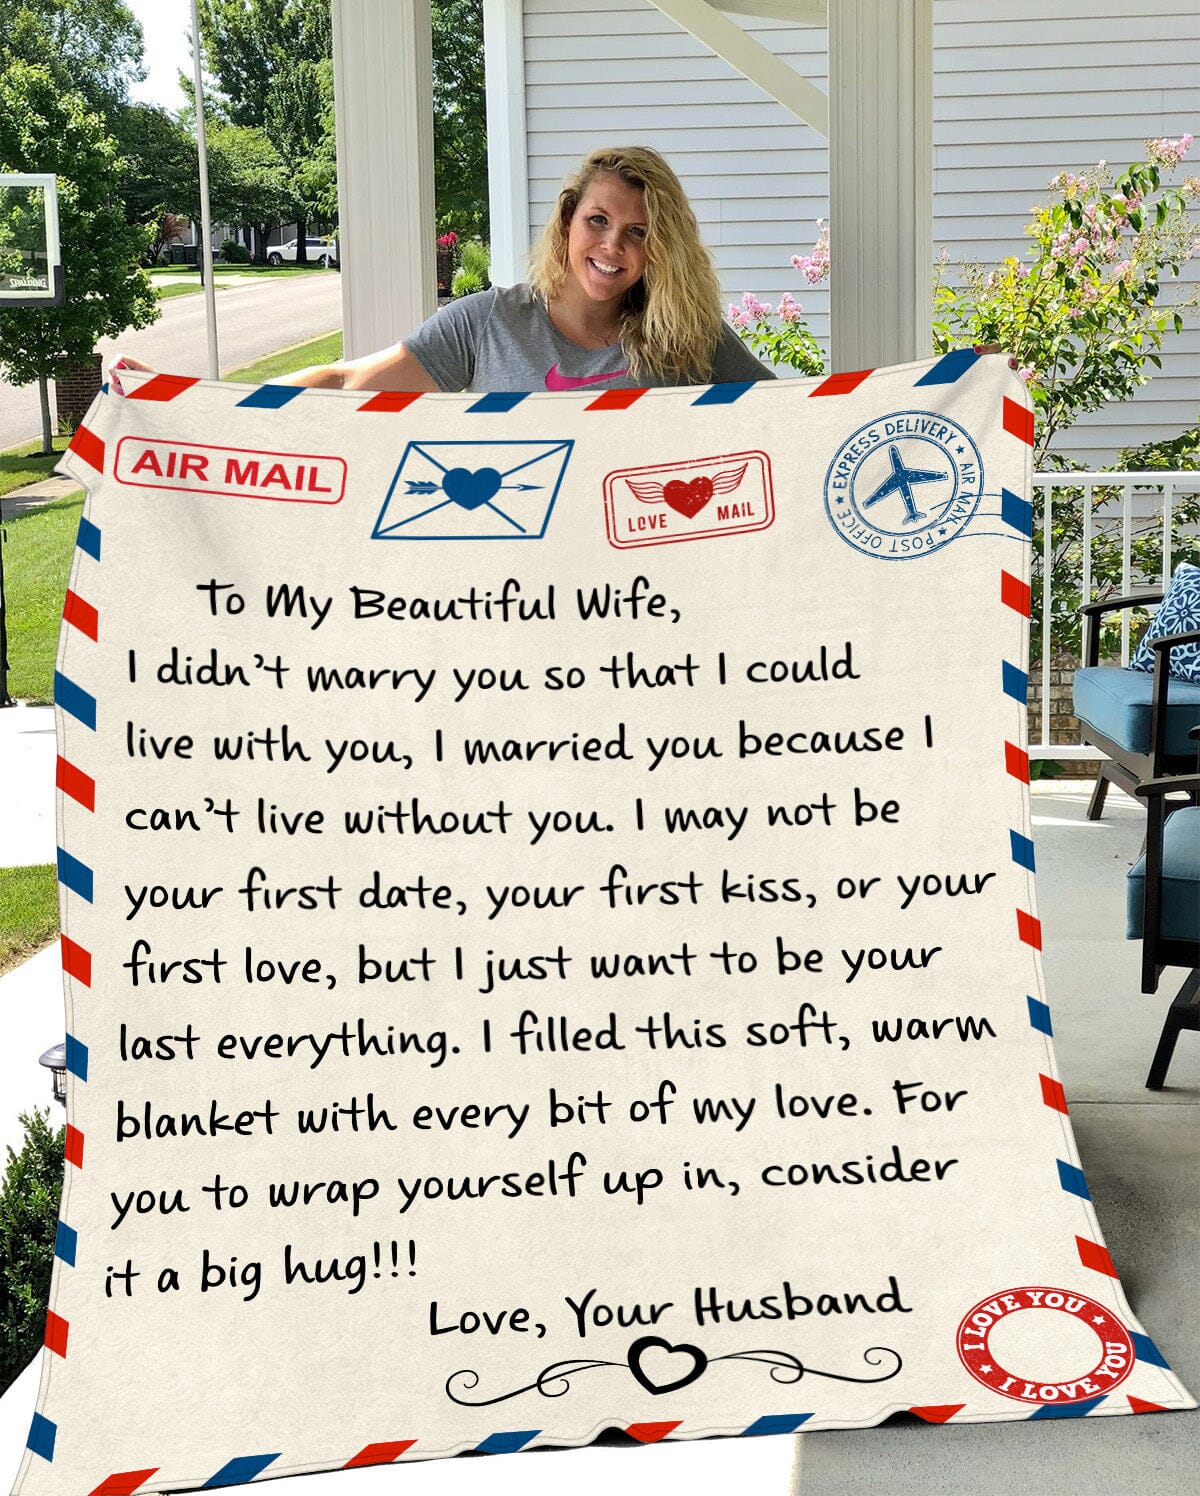 SPALDING
AIR MAIL
LOVE MAIL
EXPRESS DELIVERY ★ AIR MAIL ★ POST OFFICE ★
To My Beautiful Wife,
I didn't marry you so that I could
live with you, I married you because I
can't live without you. I may not be
your first date, your first kiss, or your
first love, but I just want to be your
last everything. I filled this soft, warm
blanket with every bit of my love. For
you to wrap yourself up in, consider
it a big hug!!!
Love, Your Husband
I LOVE YOU ★ I LOVE YOU ★